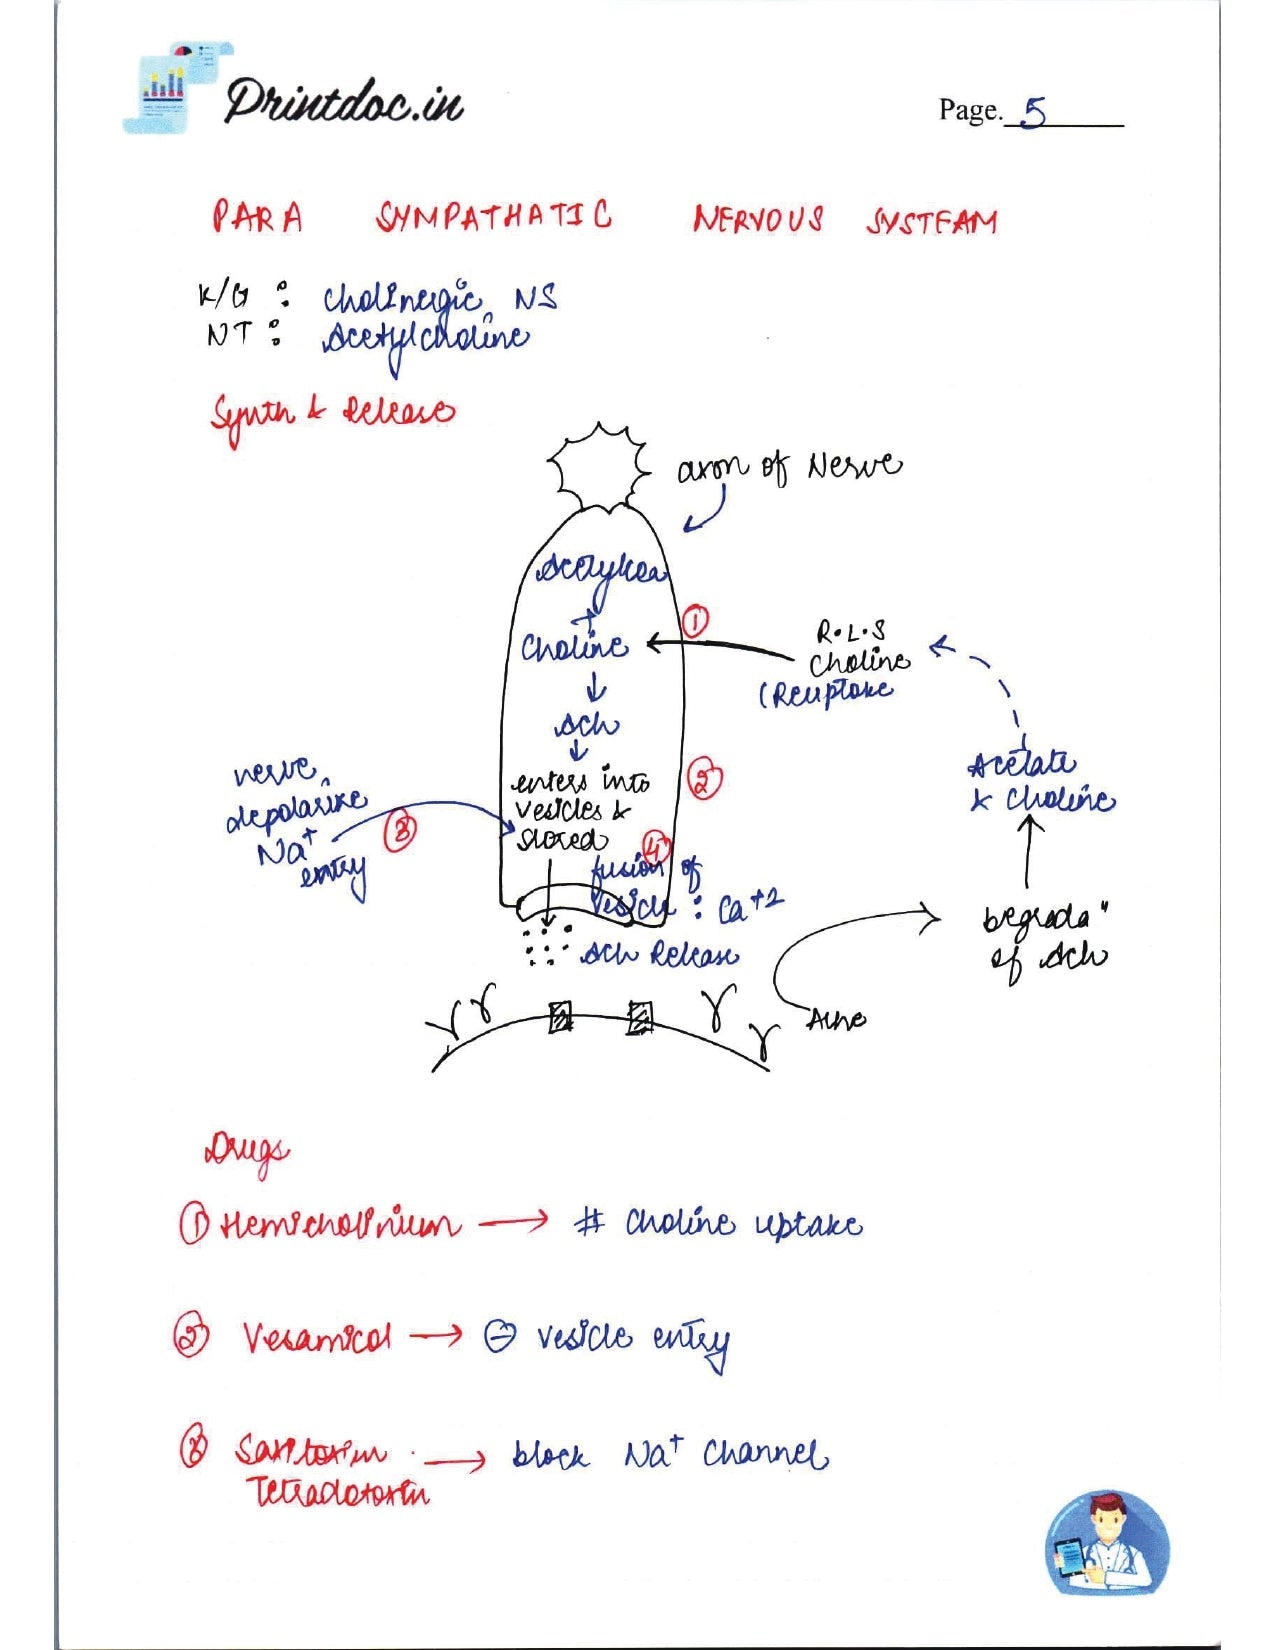 Printdoc.in
Page. 5
PARA SYMPATHATIC NERVOUS SYSTEAM
K/G : Cholinergic NS
NT : Acetylcholine
Synth & Release
axon of Nerve
AcetylCoA
+
Choline
①
R.L.S
Choline
(Reuptake
↓
Ach
↓
enters into
vesicles &
stored
②
nerve
depolarize
Na+
entry
③
Acetate
& Choline
④
fusion of
vesicle : Ca+2
Ach Release
Degradaⁿ
of Ach
Ache
Drugs
① Hemicholinium → # choline uptake
② Vesamicol → ⊖ vesicle entry
③ Saxitoxin → block Na+ Channel
Tetradotoxin